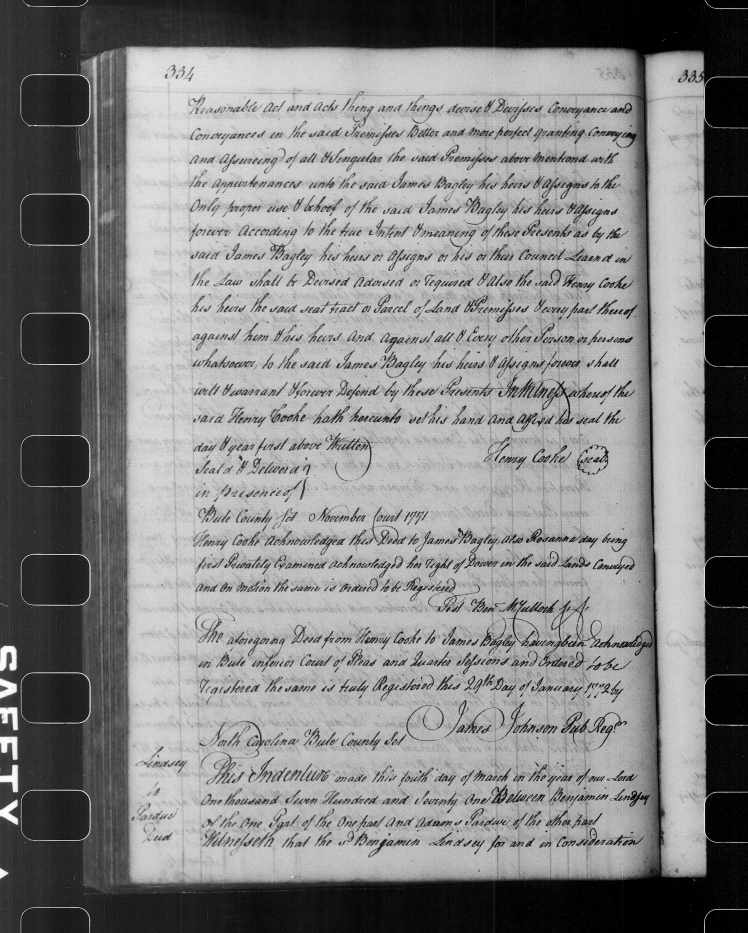 334
335
Reasonable Act and Acts thing and things devise & Devisses Conveyance and
Conveyances in the said Premisses Better and more perfect granting Conveying
and Assureing of all & Singular the said Premisses above mentiond with
the Appurtenances unto the said James Bagley his heirs & Assigns to the
Only proper use & behoof of the said James Bagley his heirs & Assigns
forever According to the true Intent & meaning of these Presents as by the
said James Bagley his heirs or Assigns or his or their Council Learnd in
the Law shall be Devised Advised or required & Also the said Henry Cooke
his heirs the said seat tract or Parcel of Land & Premisses & every part thereof
against him & his heirs And Against all & Every other Person or persons
whatsoever, to the said James Bagley his heirs & Assigns forever shall
will & warrant & forever Defend by these Presents In Witness whereof the
said Henry Cooke hath hereunto set his hand And Affixd his seal the
day & year first above Written
Henry Cooke Seal
Seal'd & Deliver'd
in presence of
Bute County Sct November Court 1771
Henry Cooke Acknowledged this Deed to James Bagley, Also Rosanna day being
first Privately Examined Acknowledged her Right of Dower in the said Lands Conveyed
And On Motion the same is Ordered to be Registered
Test Ben McCulloch
The aforegoing Deed from Henry Cooke to James Bagley having been Acknowledged
in Bute inferior Court of Pleas and Quarter Sessions and Ordered to be
registered the same is truly Registered this 29th Day of January 1772 by
James Johnson Pub Regr
North Carolina Bute County Sct
Lindsey
to
Pardue
Deed
This Indenture made this fourth day of March in the year of our Lord
One thousand Seven Hundred and Seventy One Between Benjamin Lindsey
of the One Part of the One part And Adams Pardue of the other part
Witnesseth that the sd Benjamin Lindsey for and in Consideration
SAFETY